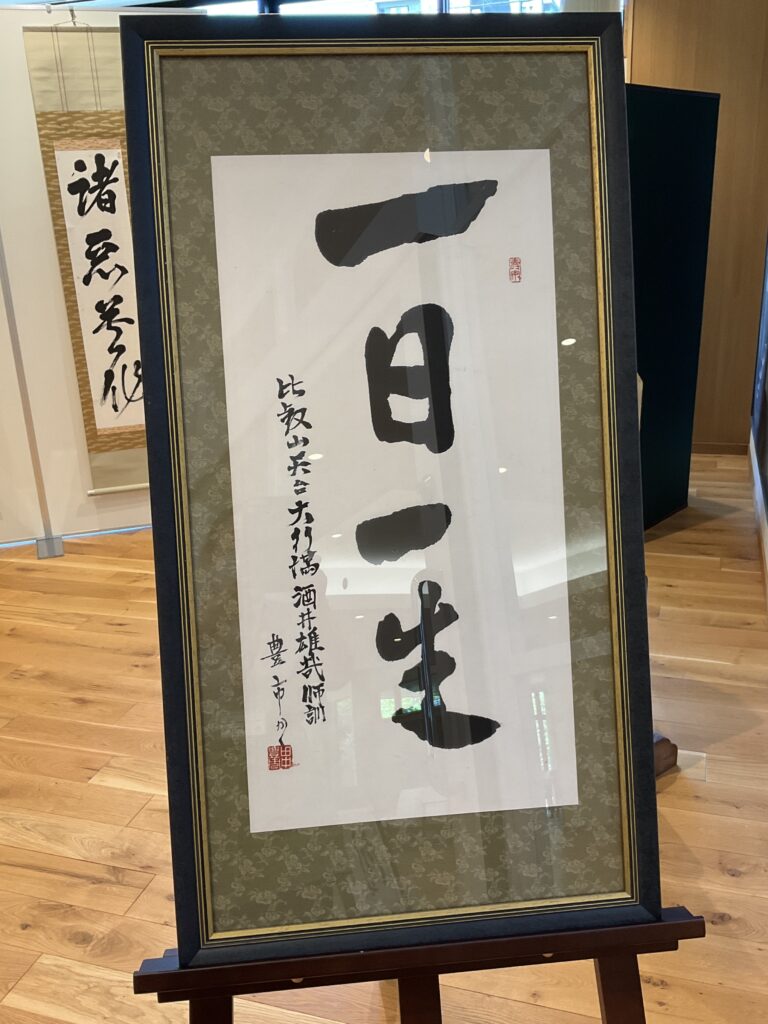 一日一生
比叡山天台大行満 酒井雄哉師訓
豊市かく
諸悪莫作